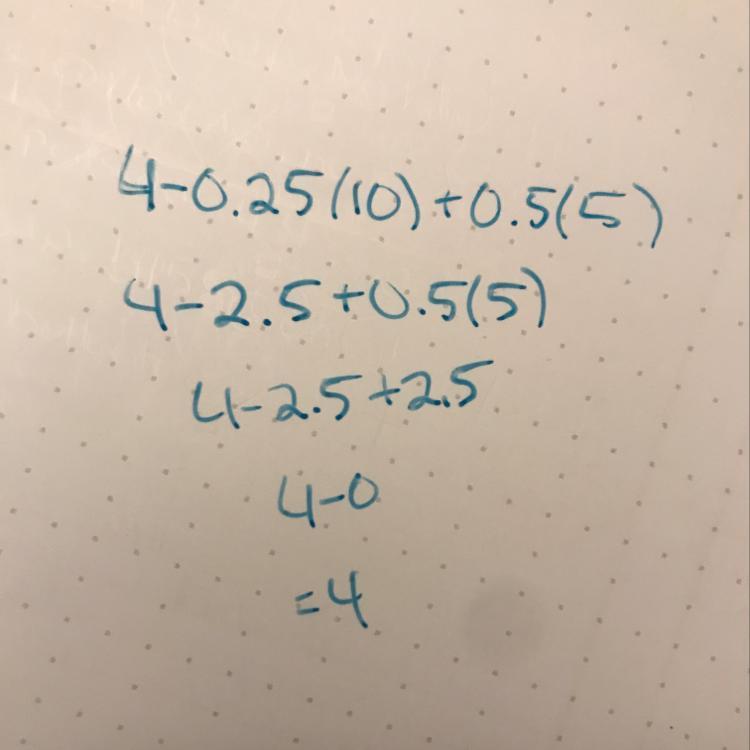 4-0.25(10)+0.5(5)
4-2.5+0.5(5)
4-2.5+2.5
4-0
=4